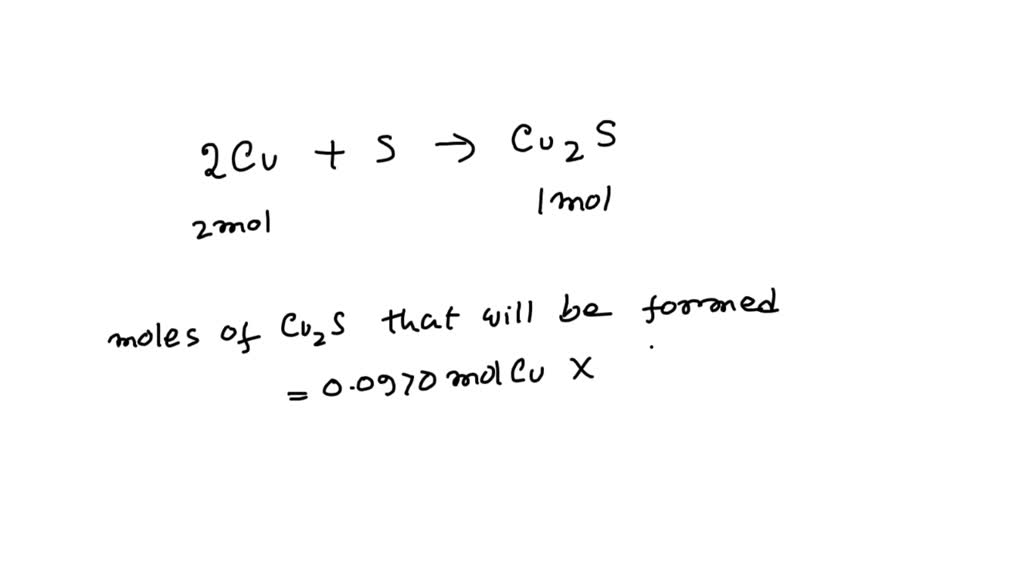 2Cu + S → Cu₂S
2mol 1mol
moles of Cu₂S that will be formed
= 0.0970 mol Cu X